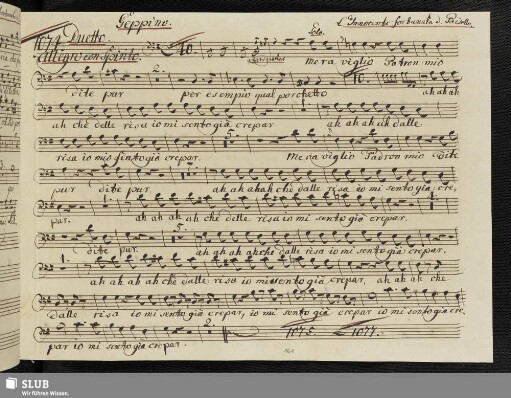 Geppino. L'Innocente fortunata d. Paisiello
1074 Duetto. Solo.
Allegro con spirito. 10.
Meraviglio Patron mio
2. 10.
Dite pur per esempio qual porchetto ah ah ah
ah che delle risa io mi sento già crepar ah ah ah ah dalle
5.
risa io mi sento già crepar. Meraviglio Padron mio Dite
pur dite pur. ah ah ah ah chè dalle risa io mi sento già cre,
par. ah ah ah ah chè delle risa io mi sento già crepar.
5.
Dite pur. ah ah ah ah che dalle risa io mi sento già crepar.
1.
ah ah ah ah chè dalle risa io mi sento già crepar, ah ah ah che
Dalle risa io mi sento già crepar, io mi sento già crepar io mi sento già cre
2. 1075 1077.
par io mi sento già crepar.
SLUB
Wir führen Wissen.